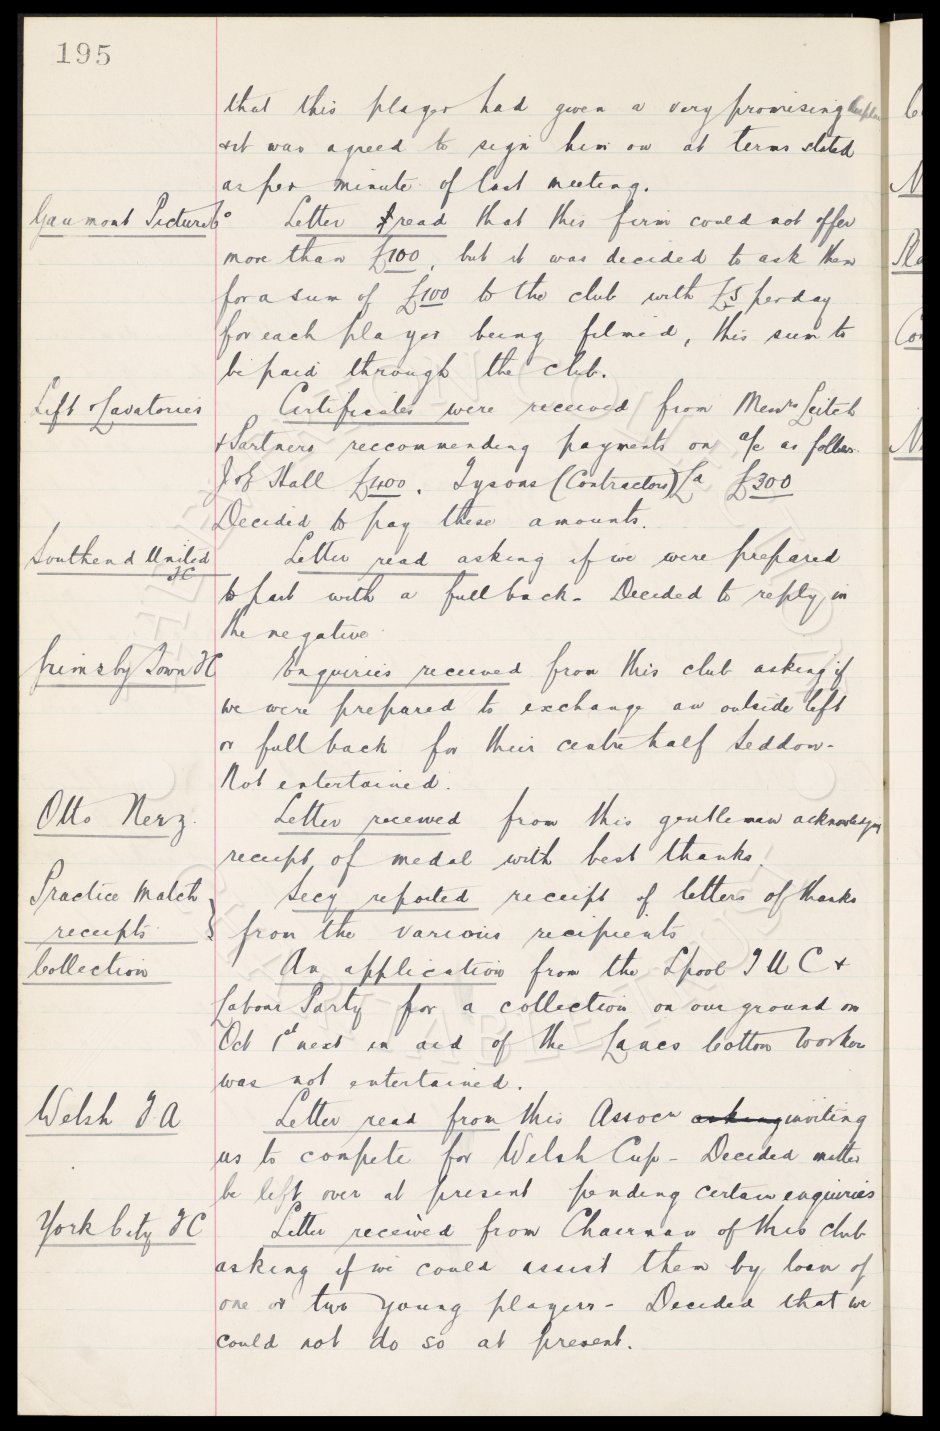 195
that this player had given a very promising
& it was agreed to sign him on at terms stated
as per minute of last meeting.
Gaumont Picture Co Letter read that this firm could not offer
more than £100, but it was decided to ask them
for a sum of £100 to the club with £5 per day
for each player being filmed, this sum to
be paid through the club.
Lift & Lavatories Certificates were received from Messrs Leitch
& Partners reccommending payments on a/c as follows.
J & E Hall £400. Tysons (Contractors) Ld £300
Decided to pay these amounts.
Southend United FC Letter read asking if we were prepared
to part with a full back - Decided to reply in
the negative
Grimsby Town FC Enquiries received from this club asking if
we were prepared to exchange an outside left
or full back for their centre half Seddon -
Not entertained.
Otto Nerz. Letter received from this gentleman acknowledging
receipt of medal with best thanks.
Practice Match Secy reported receipt of letters of thanks
receipts } from the various recipients
Collection An application from the Lpool T U C &
Labour Party for a collection on our ground on
Oct 1st next in aid of the Lancs Cotton Workers
was not entertained.
Welsh F A Letter read from this Assocn asking inviting
us to compete for Welsh Cup - Decided matter
be left over at present pending certain enquiries
York City FC Letter received from Chairman of this club
asking if we could assist them by loan of
one or two young players - Decided that we
could not do so at present.